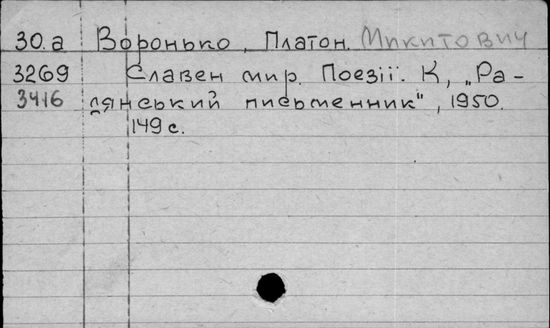 30.a Воронько, Платон. Микитович
3269 Славен мир. Поезії. К, „Ра-
3416 дянський письменник", 1950.
149 с.